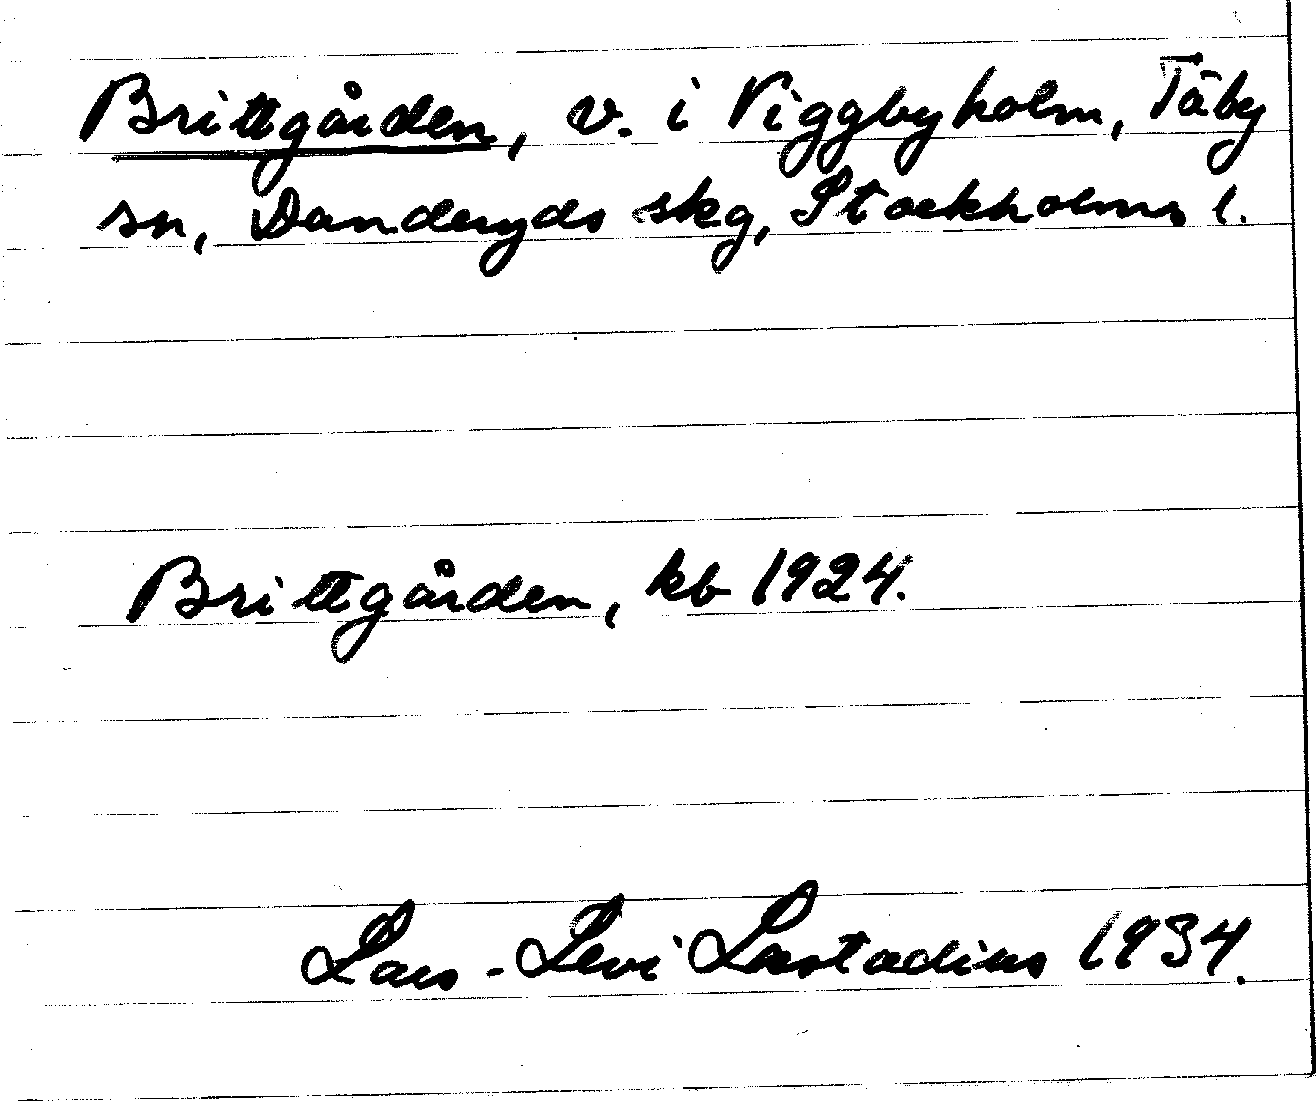 Brittgården, v. i Viggbyholm, Täby
sn, Danderyds skg, Stockholms l.
Brittgården, kb 1924.
Lars-Levi Læstadius 1934.